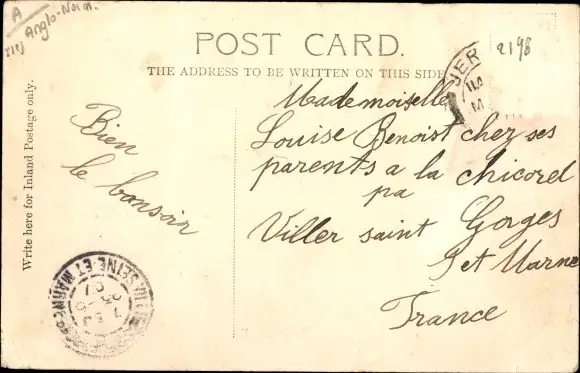 A
Anglo-Norm.
2198
POST CARD.
THE ADDRESS TO BE WRITTEN ON THIS SIDE
JER
Write here for Inland Postage only.
Bien
le bonsoir
Mademoiselle
Louise Benoist chez ses
parents a la chicorel
pa
Viller saint Gorges
S et Marne
France
SEINE-ET-MARNE